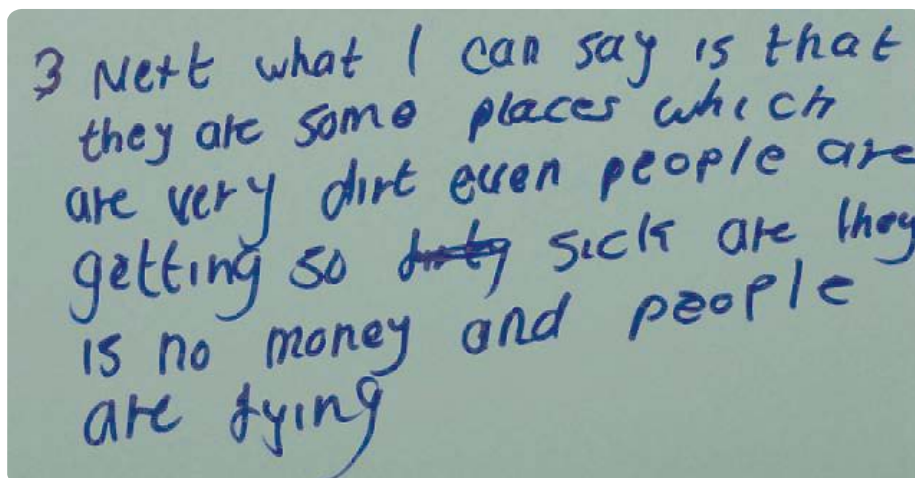 3 Next what I can say is that
they are some places which
are very dirt even people are
getting so dirty sick are they
is no money and people
are dying